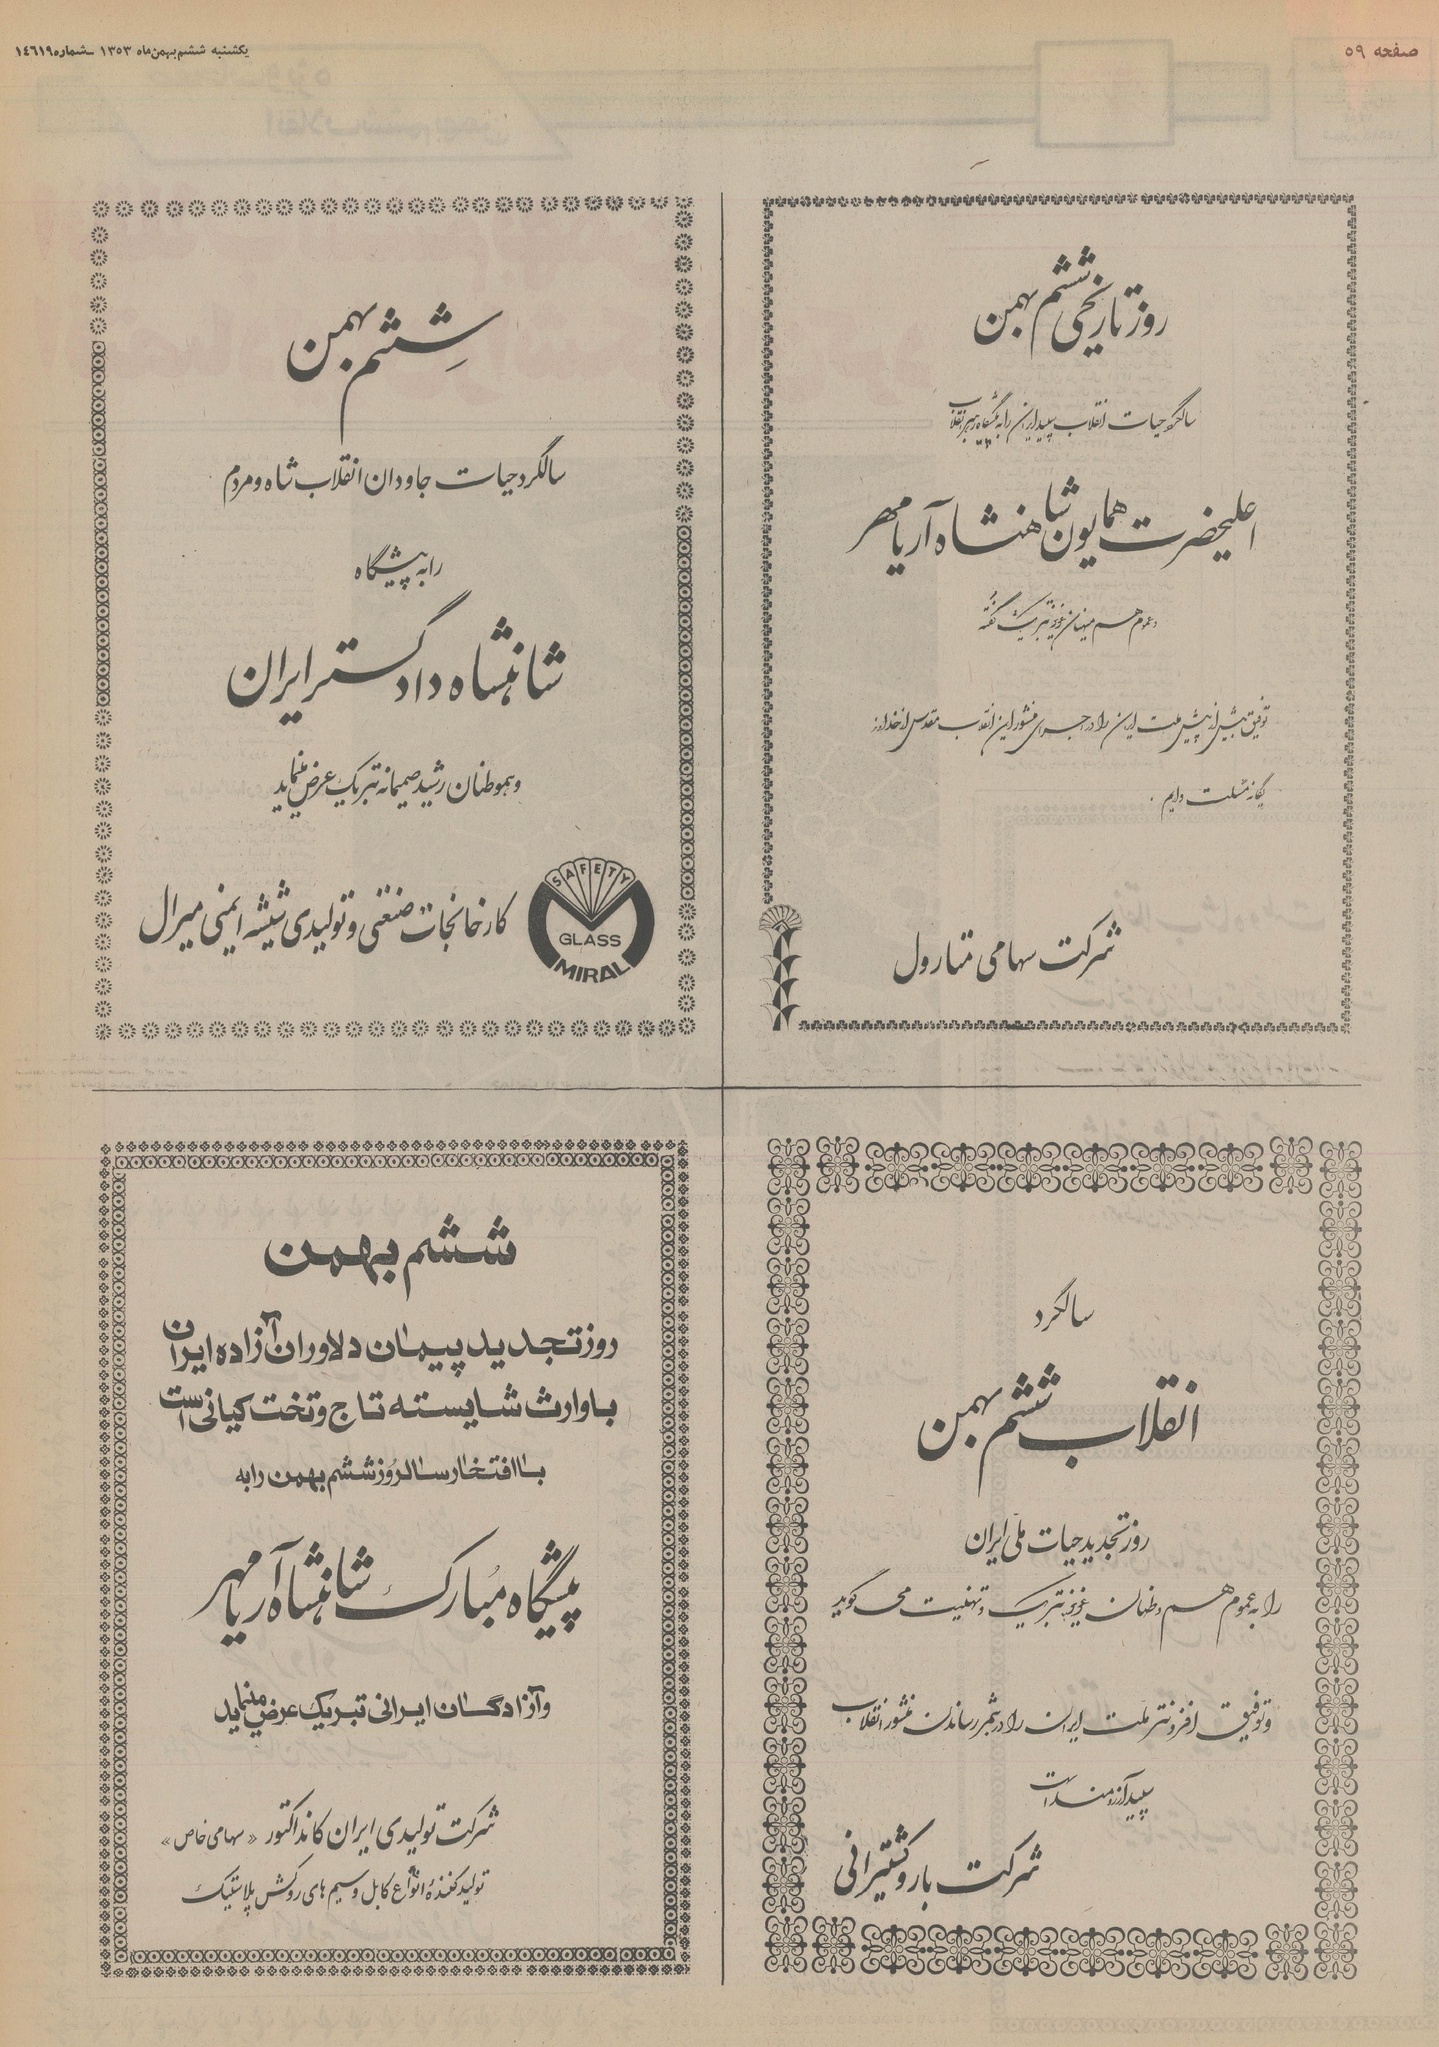 صفحه ۵۹
یکشنبه ششم بهمن ماه ۱۳۵۳ ـ شماره ۱۴۶۱۹
روز تاریخی ششم بهمن
سالگرد حیات انقلاب سپید ایران را به پیشگاه رهبر انقلاب
اعلیحضرت همایون شاهنشاه آریامهر
و عموم هم میهنان عزیز تبریک گفته
توفیق بیش از پیش ملت ایران را در اجرای منشور این انقلاب مقدس از خداوند
یگانه مسئلت داریم .
شرکت سهامی متارول
ششم بهمن
سالگرد حیات جاودان انقلاب شاه و مردم
را به پیشگاه
شاهنشاه دادگستر ایران
و هموطنان رشید صمیمانه تبریک عرض مینماید
کارخانجات صنعتی و تولیدی شیشه ایمنی میرال
SAFETY
GLASS
MIRAL
سالگرد
انقلاب ششم بهمن
روز تجدید حیات ملی ایران
را به عموم هم وطنان عزیز تبریک و تهنیت می گوید
و توفیق افزونتر ملت ایران را در بثمر رساندن منشور انقلاب
سپید آرزومند است
شرکت بار و کشتیرانی
ششم بهمن
روز تجدید پیمان دلاوران آزاده ایران
با وارث شایسته تاج و تخت کیانی است
با افتخار سالروز ششم بهمن را به
پیشگاه مبارک شاهنشاه آریامهر
و آزادگان ایرانی تبریک عرض مینماید
شرکت تولیدی ایران کانداکتور « سهامی خاص »
تولید کننده انواع کابل و سیم های روکش پلاستیک